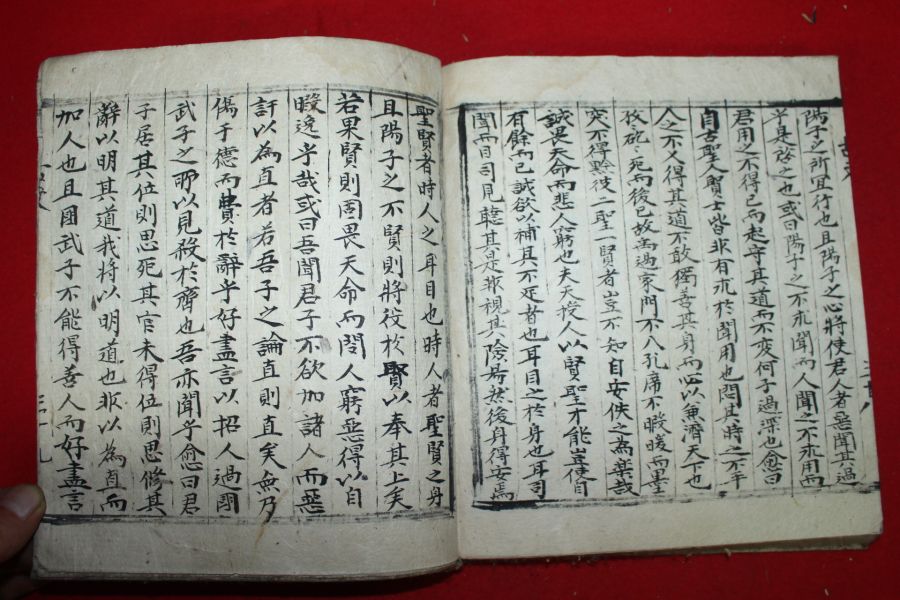 陽子之所宜行也且陽子之心將使君人者惡聞其過
乎是啓之也或曰陽子之不求聞而人聞之不求用而
君用之不得已而起守其道而不変何子過深也愈曰
自古聖人賢士皆非有求於聞用也閔其時之不平
人之不乂得其道不敢獨善其身而必以兼濟天下也
孜矻矻死而後已故禹過家門不入孔席不暇暖而墨
突不得黔彼二聖一賢者豈不知自安佚之為楽哉
誠畏天命而悲人窮也夫天授人以賢聖才能豈使自
有餘而已誠欲以補其不足者也耳目之於身也耳司
聞而目司見聽其是非視其險易然後身得安焉
三十八
聖賢者時人之耳目也時人者聖賢之身
且陽子之不賢則將役於賢以奉其上矣
若果賢則固畏天命而閔人窮惡得以自
暇逸乎哉或曰吾聞君子不欲加諸人而惡
訐以為直者若吾子之論直則直矣無乃
傷于德而費於辭乎好盡言以招人過國
武子之所以見殺於齊也吾亦聞乎愈曰君
子居其位則思死其官未得位則思修其
辭以明其道我將以明道也非以為直而
加人也且國武子不能得善人而好盡言
三十九